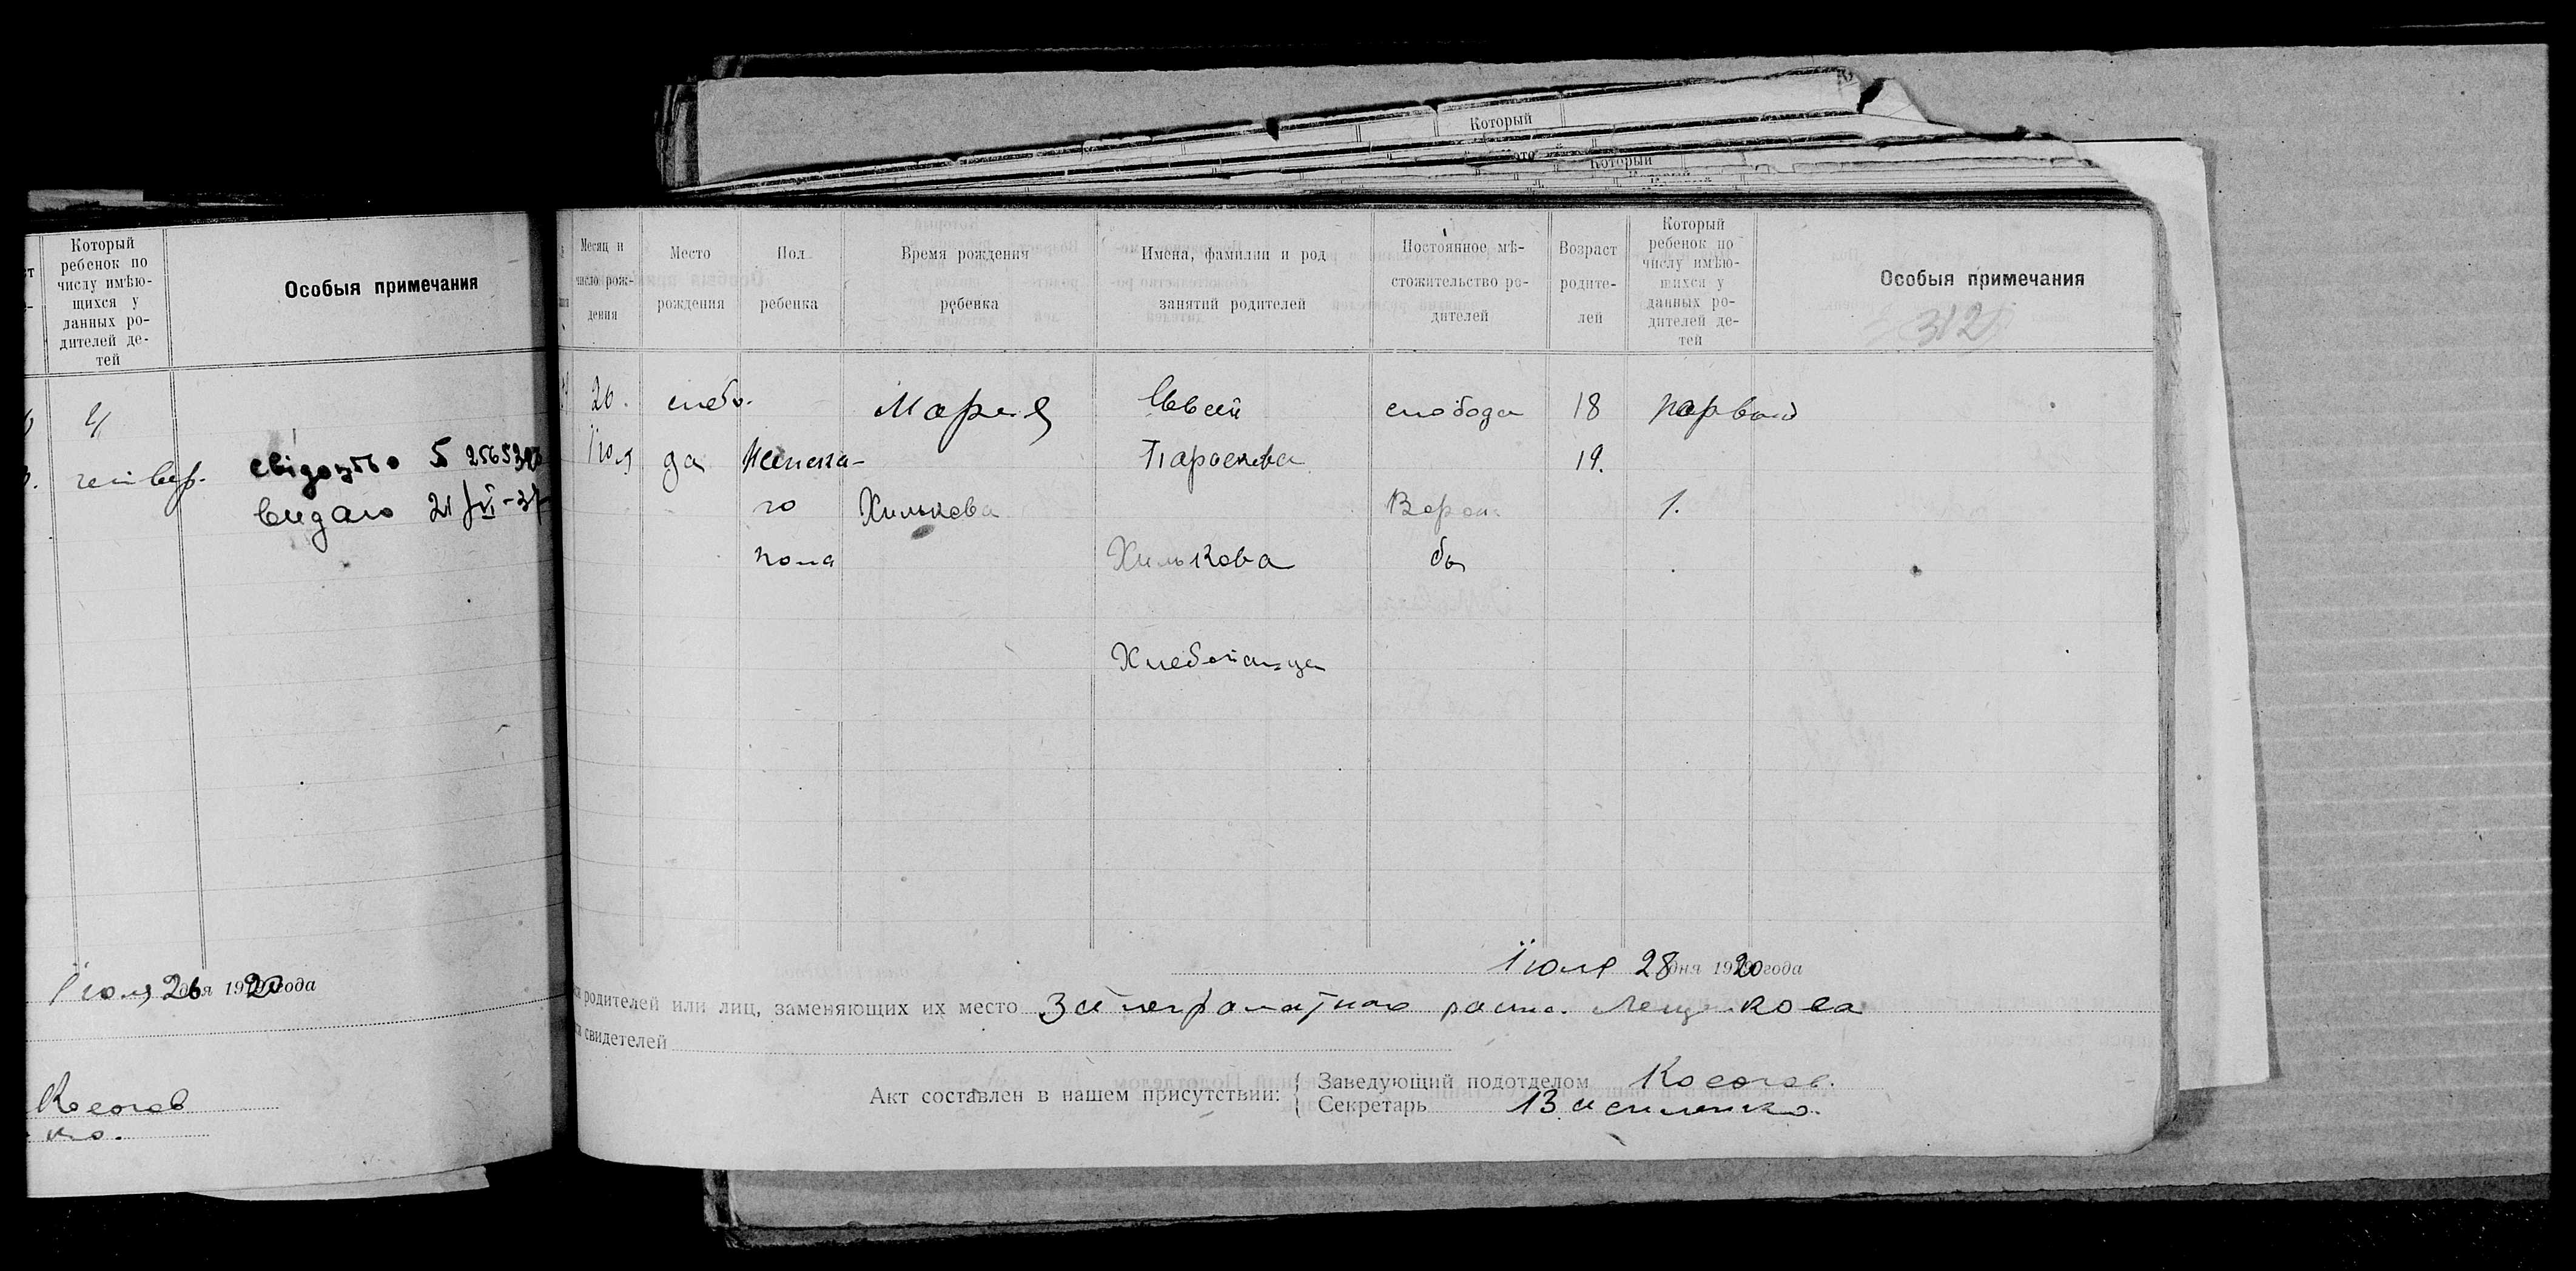 Который
Который
Который
ребенок по
числу имѣю-
щихся у
данных ро-
дителей де-
тей
Особыя примечания
4
четвер.
свідоцтво Б 256
видано 21/VI-37
Июля 26 дня 1920 года
Косогов
ко.
Месяц и
число рож-
дения
Место
рождения
Пол
ребенка
Время рождения
ребенка
Имена, фамилии и род
занятий родителей
Постоянное мѣ-
стожительство ро-
дителей
Возраст
родите-
лей
Который
ребенок по
числу имѣю-
щихся у
данных ро-
дителей де-
тей
Особыя примечания
312
26.
Июля
слобо-
да
Женска-
го
пола
Мария
Хилькова
Евсей
Параскева
Хилькова
Хлебопашца
слобода
Ворож-
ба
18
19.
первый
1.
Июля 28 дня 1920 года
родителей или лиц, заменяющих их место За неграматного распис. Лещенкова
свидетелей
Акт составлен в нашем присутствии:
Заведующий подотделом Косогов.
Секретарь Василенко.